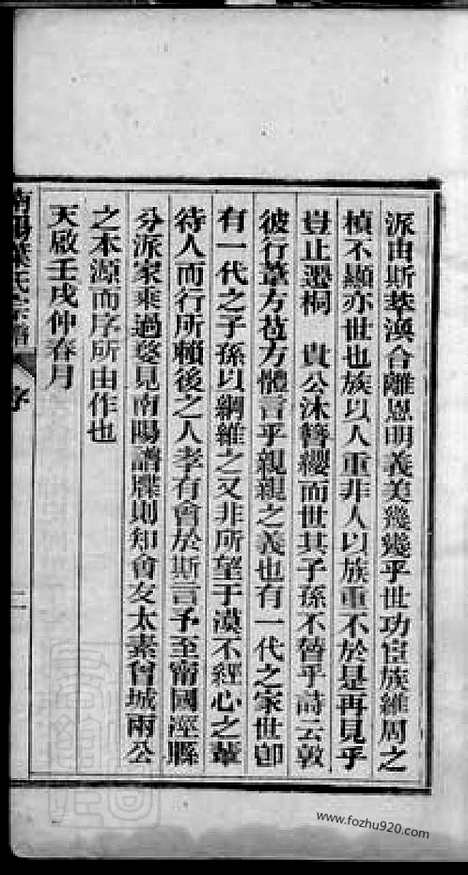 派由斯萃渙合離恩明義美幾幾乎世功宦族維周之
楨不顯亦世也族以人重非人以族重不於是再見乎
豈止遷桐 貴公沐簪纓而世其子孫不替乎詩云敦
彼行葦方苞方體言乎親親之義也有一代之家世卽
有一代之子孫以綱維之又非所望于漠不經心之輩
待人而行所賴後之人孝有會於斯言予至甯國涇縣
分派家乘過婺見南陽譜牒則知會友太素曾城兩公
之本源而序所由作也
天啟壬戌仲春月
南陽葉氏宗譜 序 二
www.fozhu920.com